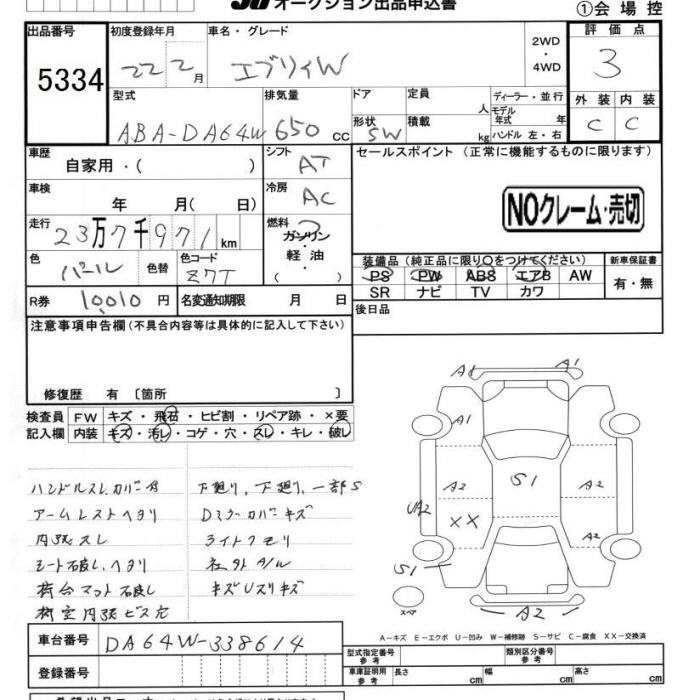 オークション出品申込書
①会場控
出品番号
5334
初度登録年月
22 2月
車名・グレード
エブリイW
2WD
・
4WD
評価点
3
型式
ABA-DA64W
排気量
650 cc
ドア
形状
SW
定員 人
積載 kg
ディーラー・並行
モデル年式 年
ハンドル 左・右
外装 内装
C C
車歴
自家用・( )
シフト
AT
セールスポイント (正常に機能するものに限ります)
車検
年 月( 日)
冷房
AC
NOクレーム・売切
走行
23万7千971km
燃料
ガソリン
・
軽油
( )
色
パール
色替
色コード
Z7T
装備品 (純正品に限り○をつけてください)
PS PW ABS エアB AW
SR ナビ TV カワ
新車保証書
有・無
R券 10,010円
名変通知期限 月 日
後日品
注意事項申告欄(不具合内容等は具体的に記入して下さい)
修復歴 有 〔箇所 〕
検査員
記入欄
FW キズ・飛石・ヒビ割・リペア跡・×要
内装 キズ・汚レ・コゲ・穴・スレ・キレ・破レ
ハンドルスレ.カバー付
アームレストヘタリ
内張スレ
シート破レ.ヘタリ
荷台マット破レ
荷室内張ビス穴
下廻り,下廻り,一部S
Dミラーカバーキズ
ライトクモリ
社外A/W
キズUスリキズ
A1
A1
A1
A2
S1
A2
UA2
XX
A2
S1
スペア
A2
A-キズ E-エクボ U-凹み W-補修跡 S-サビ C-腐食 XX-交換済
車台番号
DA64W-338614
登録番号
型式指定番号
参考
類別区分番号
参考
車庫証明用
参考
長さ cm
幅 cm
高さ cm